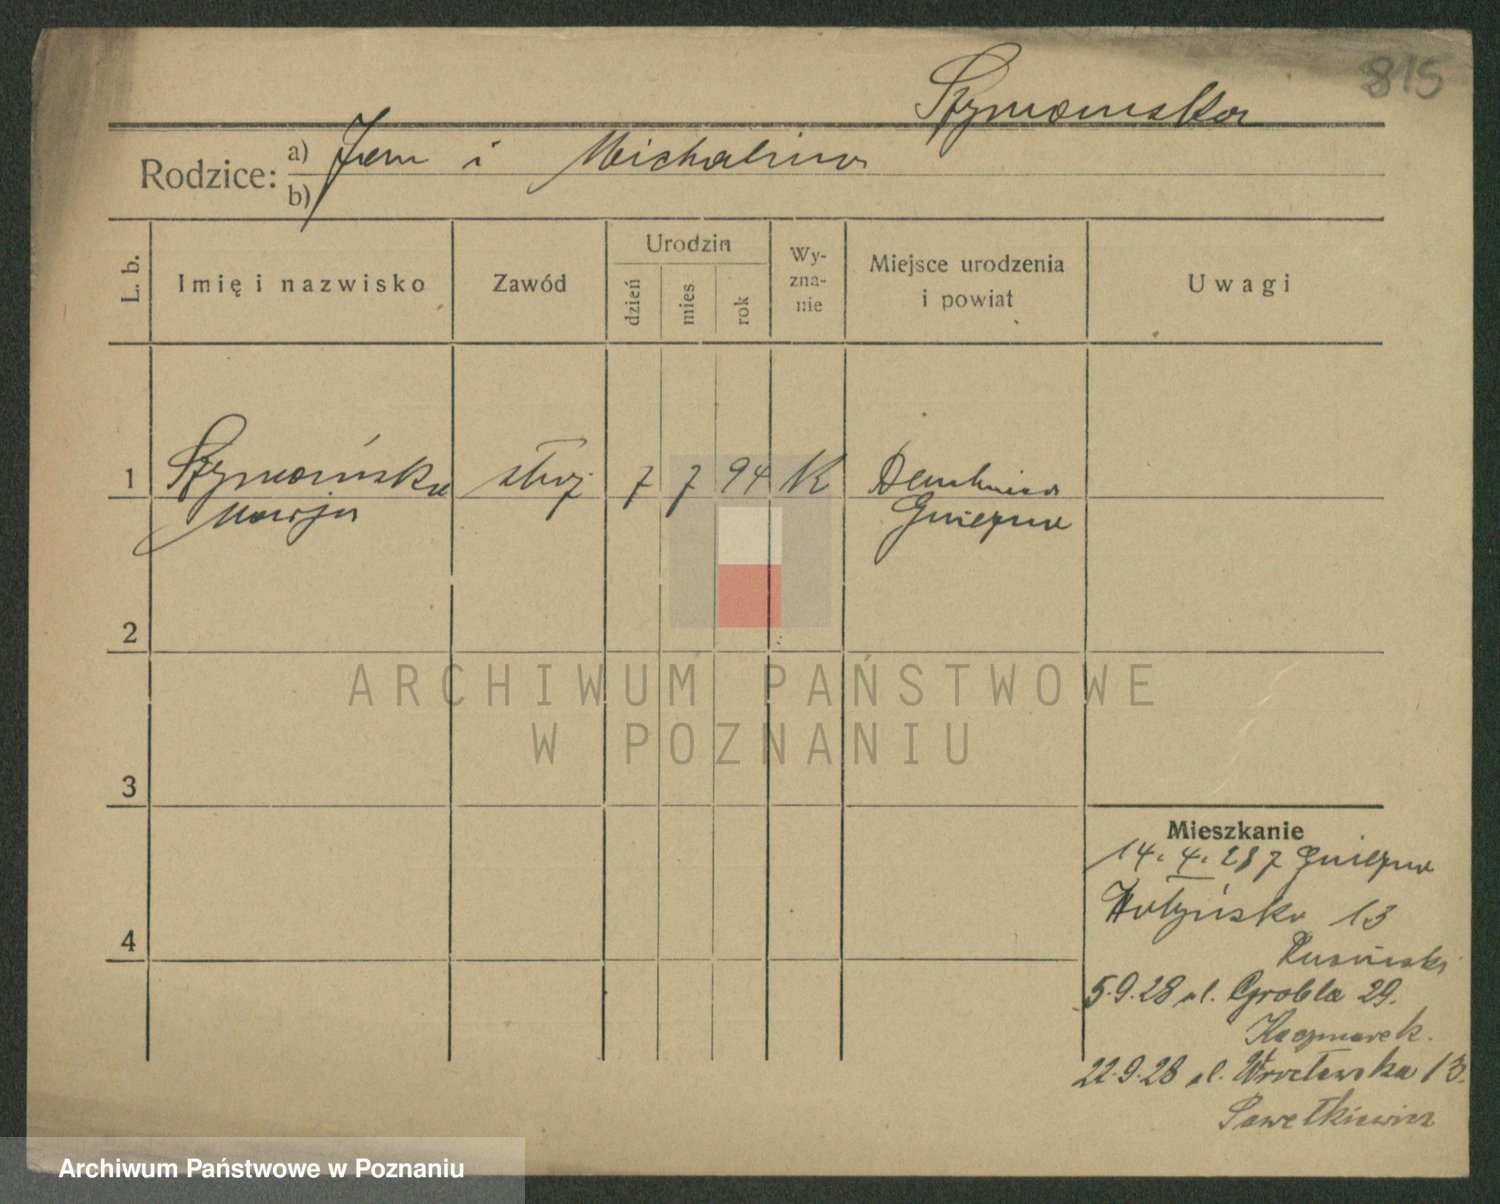 815
Szymańska
Rodzice:
a) Jan i Michalina
b)
L. b.
Imię i nazwisko
Zawód
Urodzin
dzień
mies
rok
Wy-
zna-
nie
Miejsce urodzenia
i powiat
Uwagi
1 Szymańska służ. 7 7 94 K
Marja Gniezno
2
3
4
Mieszkanie
14. 4. 28 z Gniezna
Wołyńska 13
5.9.28 ul. Grobla 29.
Kaczmarek.
22.9.28 ul. Wrocławska 13.
Pawełkiewicz
ARCHIWUM PAŃSTWOWE
W POZNANIU
Archiwum Państwowe w Poznaniu